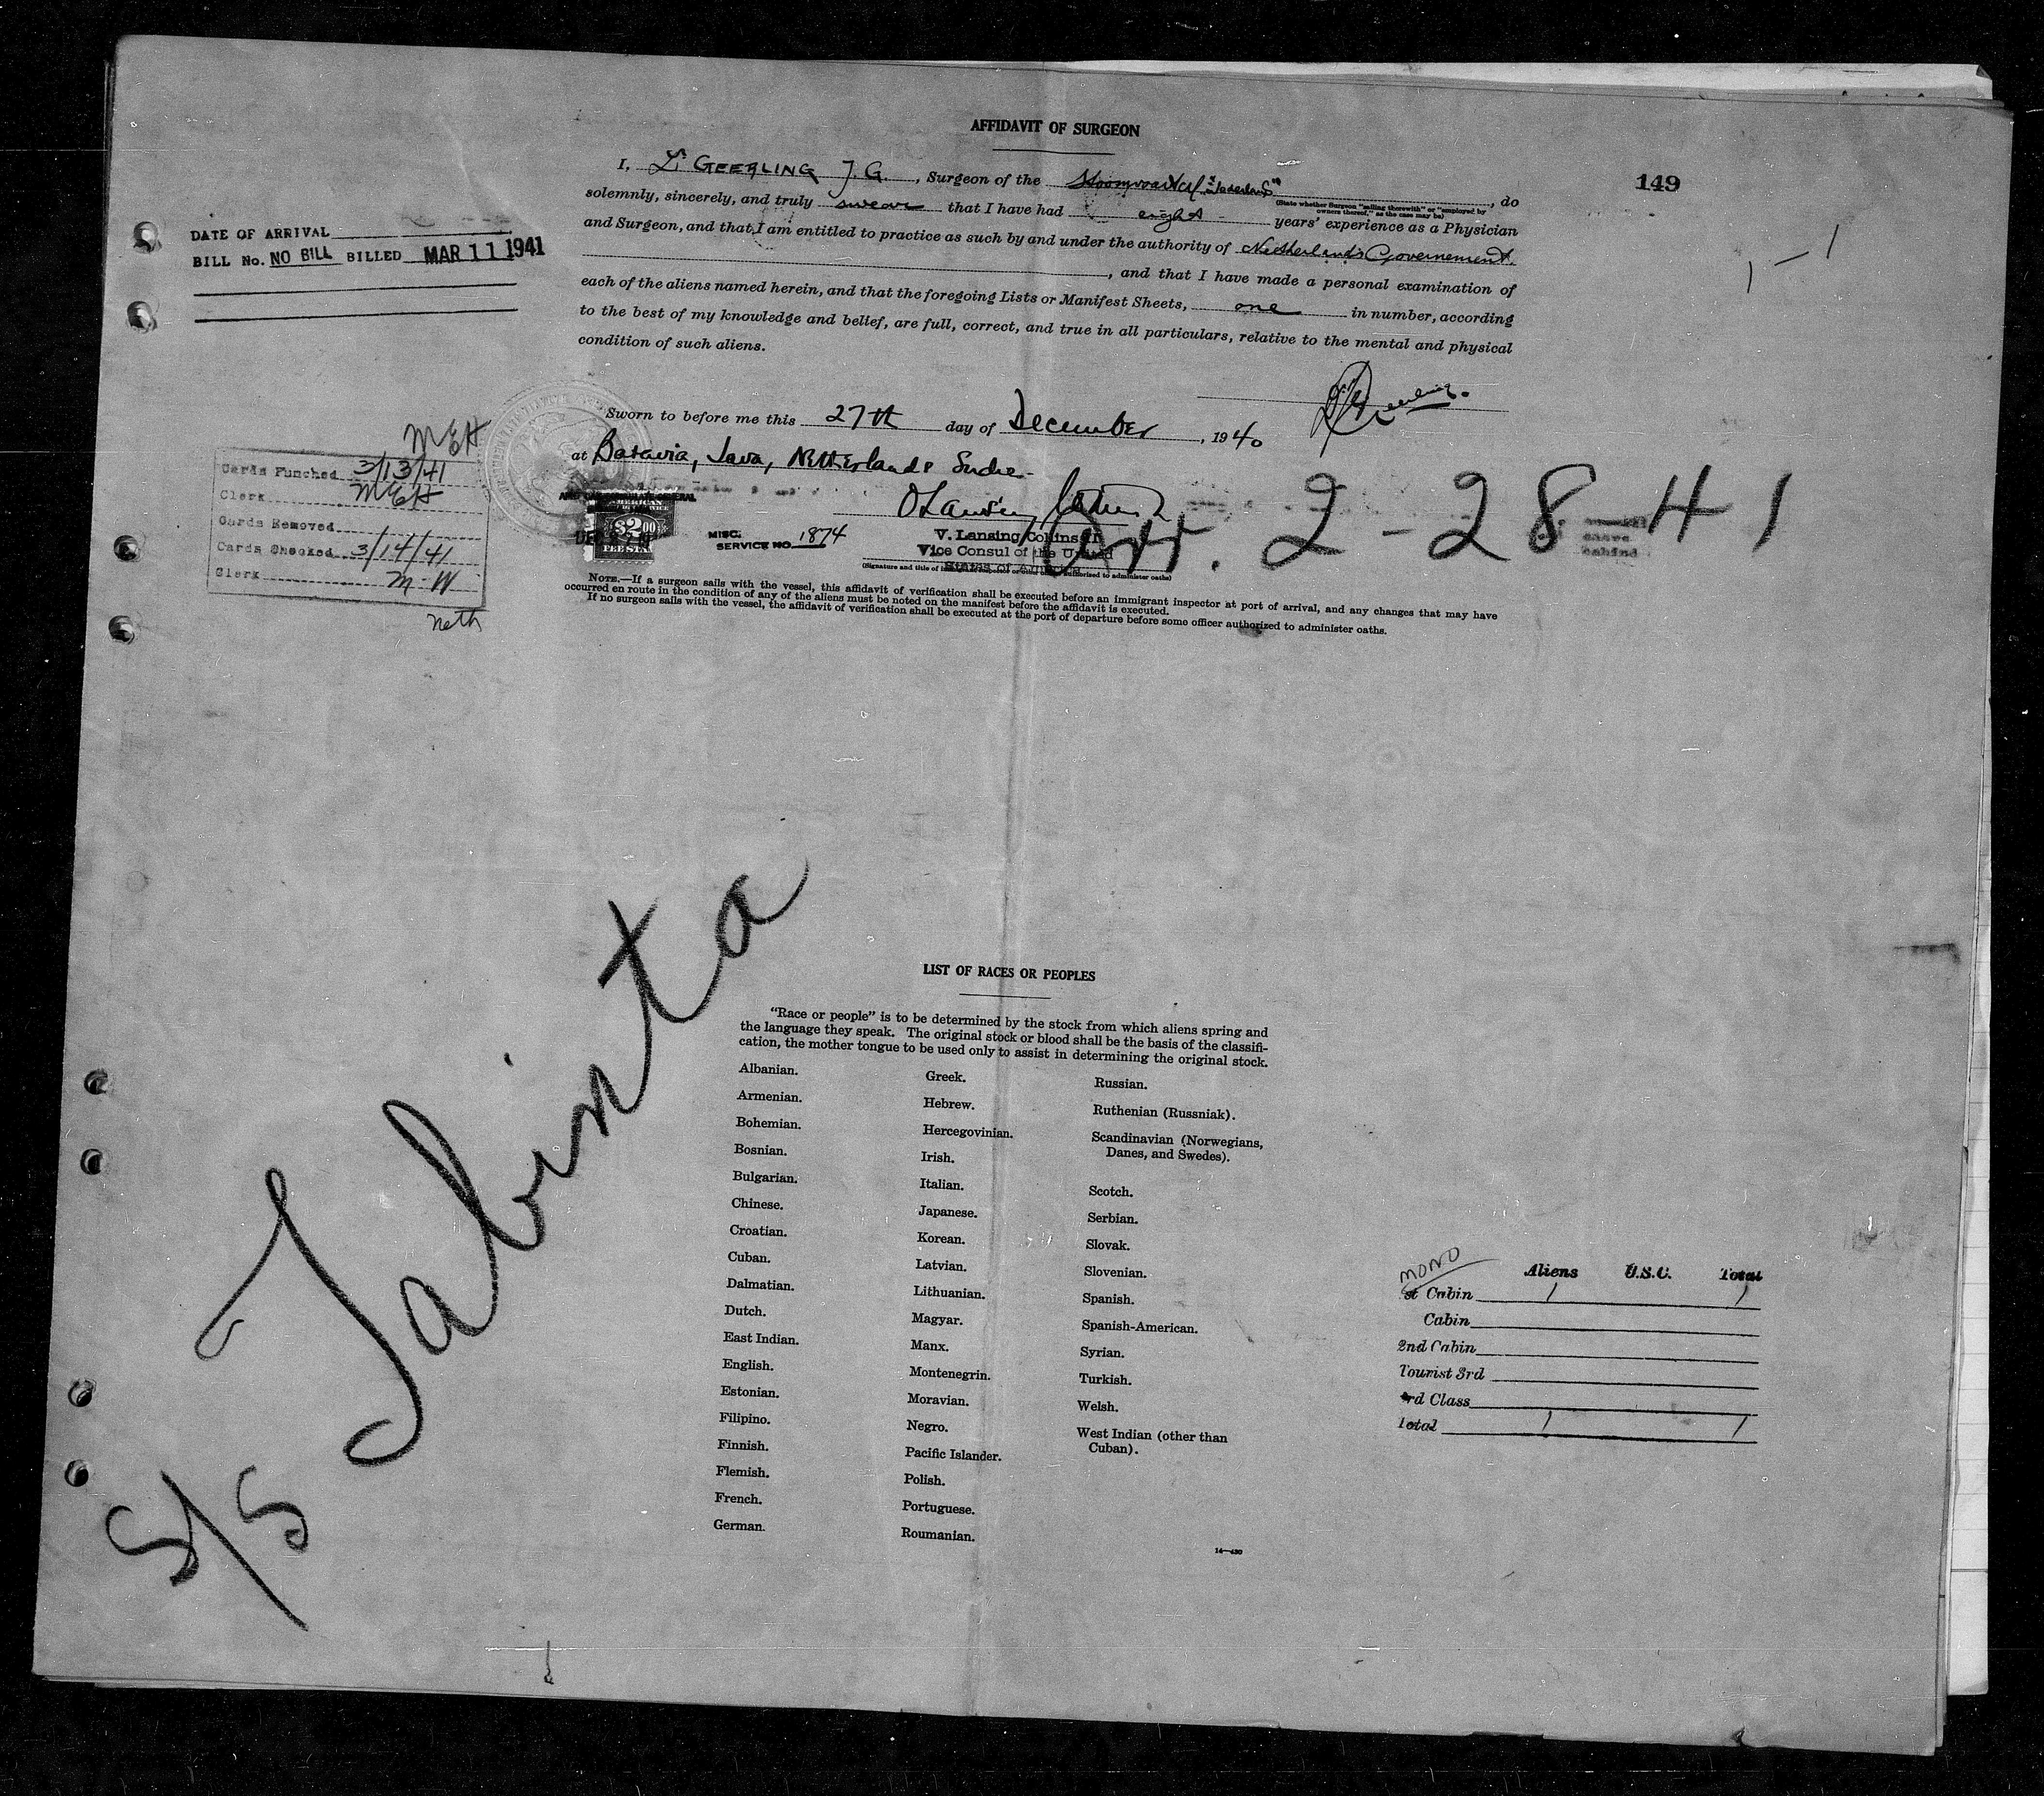 AFFIDAVIT OF SURGEON
149
I, GEERLING J. G., Surgeon of the
(State whether Surgeon "sailing therewith" or "employed by owners thereof," as the case may be)
, do
solemnly, sincerely, and truly swear that I have had eight years' experience as a Physician
and Surgeon, and that I am entitled to practice as such by and under the authority of Netherlands Governement.
, and that I have made a personal examination of
each of the aliens named herein, and that the foregoing Lists or Manifest Sheets, one in number, according
to the best of my knowledge and belief, are full, correct, and true in all particulars, relative to the mental and physical
condition of such aliens.
1-1
DATE OF ARRIVAL
BILL No. NO BILL BILLED MAR 11 1941
Sworn to before me this 27th day of December, 1940
at Batavia, Java, Netherlands Indie
MEH
Cards Punched 3/13/41
Clerk MEH
Cards Removed
Cards Checked 3/14/41
Clerk M-W
Neth
$2.00
FEE STAMP
MISC.
SERVICE NO. 1874
V. Lansing Collins Jr
Vice Consul of the United
States of America
Arr. 2-28-41
NOTE.—If a surgeon sails with the vessel, this affidavit of verification shall be executed before an immigrant inspector at port of arrival, and any changes that may have
occurred en route in the condition of any of the aliens must be noted on the manifest before the affidavit is executed.
If no surgeon sails with the vessel, the affidavit of verification shall be executed at the port of departure before some officer authorized to administer oaths.
S/S Tabinta
LIST OF RACES OR PEOPLES
"Race or people" is to be determined by the stock from which aliens spring and
the language they speak. The original stock or blood shall be the basis of the classifi-
cation, the mother tongue to be used only to assist in determining the original stock.
Albanian.
Armenian.
Bohemian.
Bosnian.
Bulgarian.
Chinese.
Croatian.
Cuban.
Dalmatian.
Dutch.
East Indian.
English.
Estonian.
Filipino.
Finnish.
Flemish.
French.
German.
Greek.
Hebrew.
Hercegovinian.
Irish.
Italian.
Japanese.
Korean.
Latvian.
Lithuanian.
Magyar.
Manx.
Montenegrin.
Moravian.
Negro.
Pacific Islander.
Polish.
Portuguese.
Roumanian.
Russian.
Ruthenian (Russniak).
Scandinavian (Norwegians,
Danes, and Swedes).
Scotch.
Serbian.
Slovak.
Slovenian.
Spanish.
Spanish-American.
Syrian.
Turkish.
Welsh.
West Indian (other than
Cuban).
14—430
MONO
Aliens U.S.C. Total
st Cabin 1 1
Cabin
2nd Cabin
Tourist 3rd
rd Class
Total 1 1